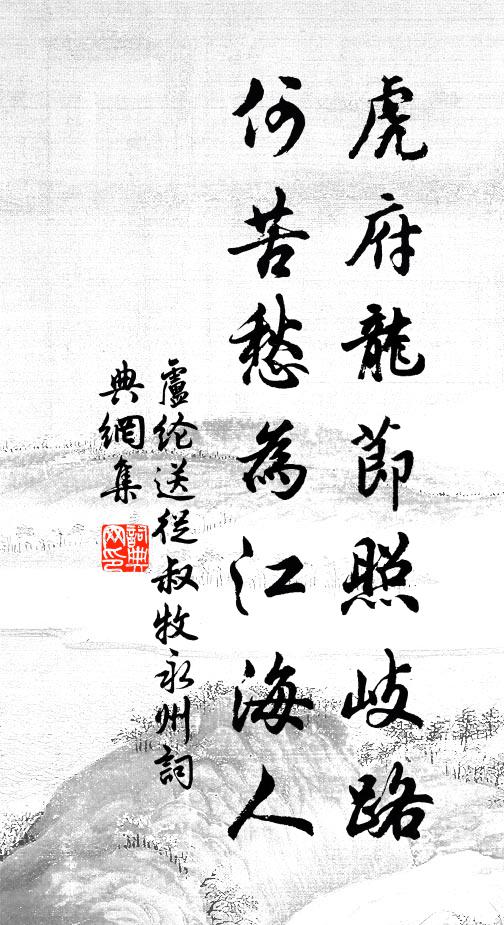 虎府龍節照歧路
何苦愁為江海人
盧纶送從叔牧永州詞
典網集
詞典
网印